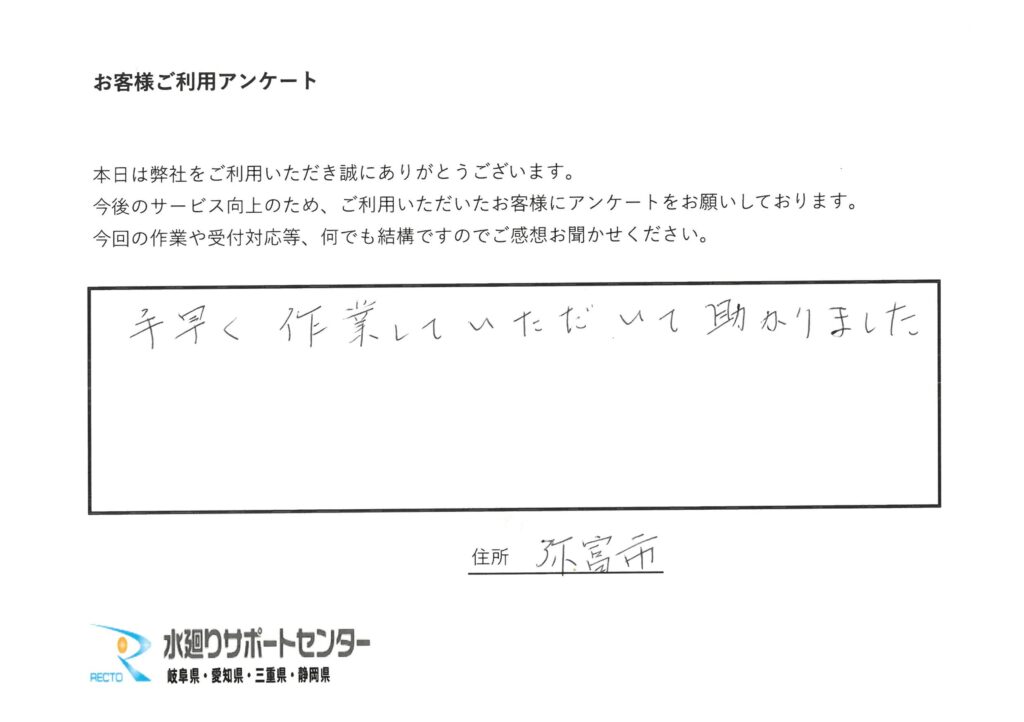 お客様ご利用アンケート
本日は弊社をご利用いただき誠にありがとうございます。
今後のサービス向上のため、ご利用いただいたお客様にアンケートをお願いしております。
今回の作業や受付対応等、何でも結構ですのでご感想お聞かせください。
手早く作業していただいて助かりました
住所 弥富市
RECTO 水廻りサポートセンター
岐阜県・愛知県・三重県・静岡県